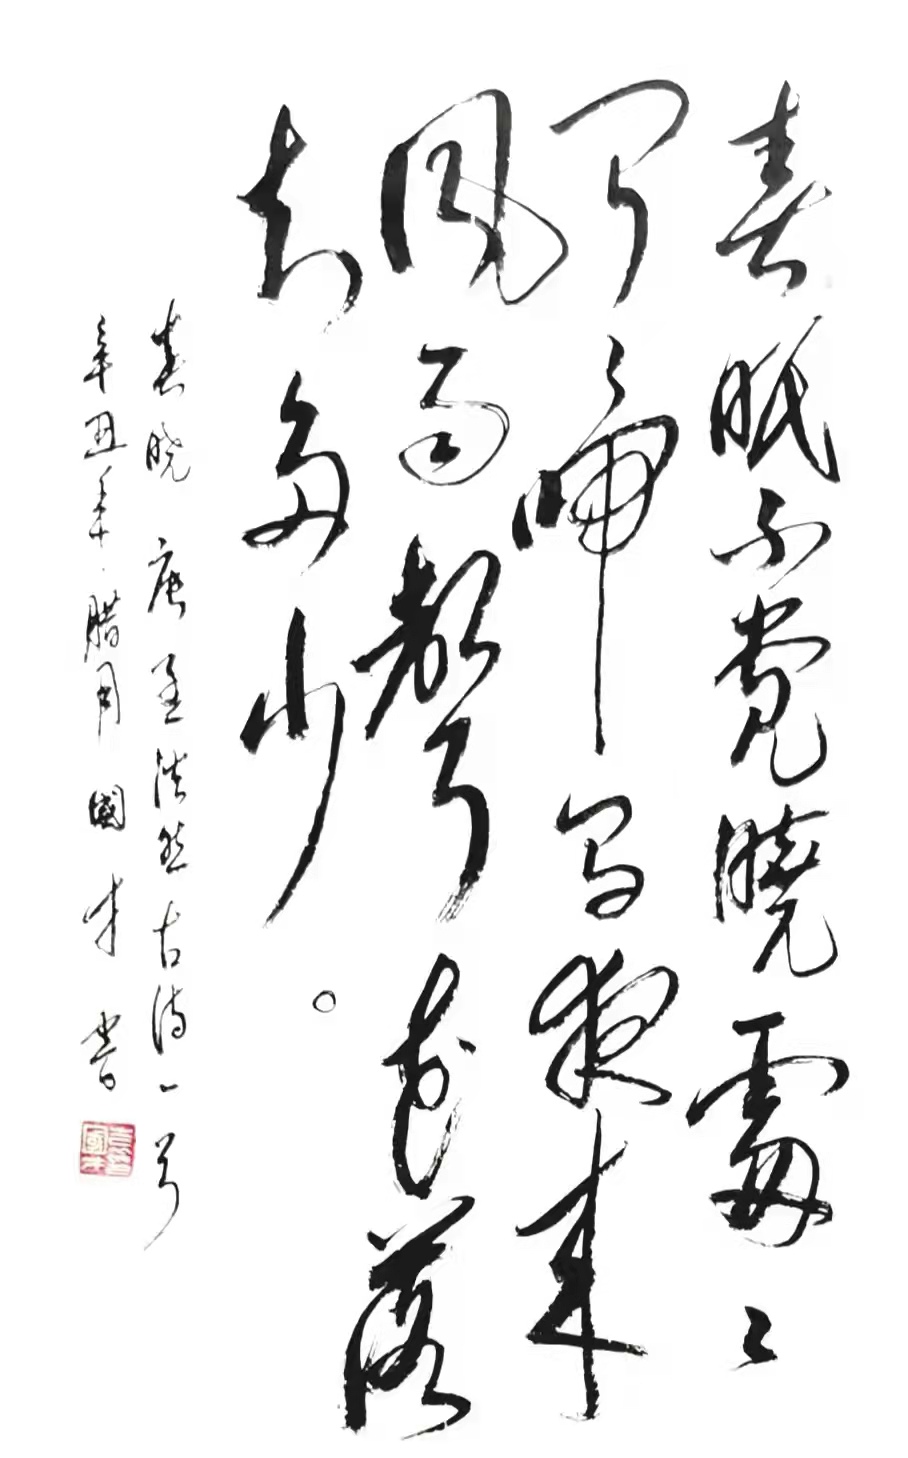 春眠不覺曉處々
聞啼鳥夜來
風雨聲花落
知多少。
春晓 唐 孟浩然古诗一首
辛丑年 腊月 國才 書